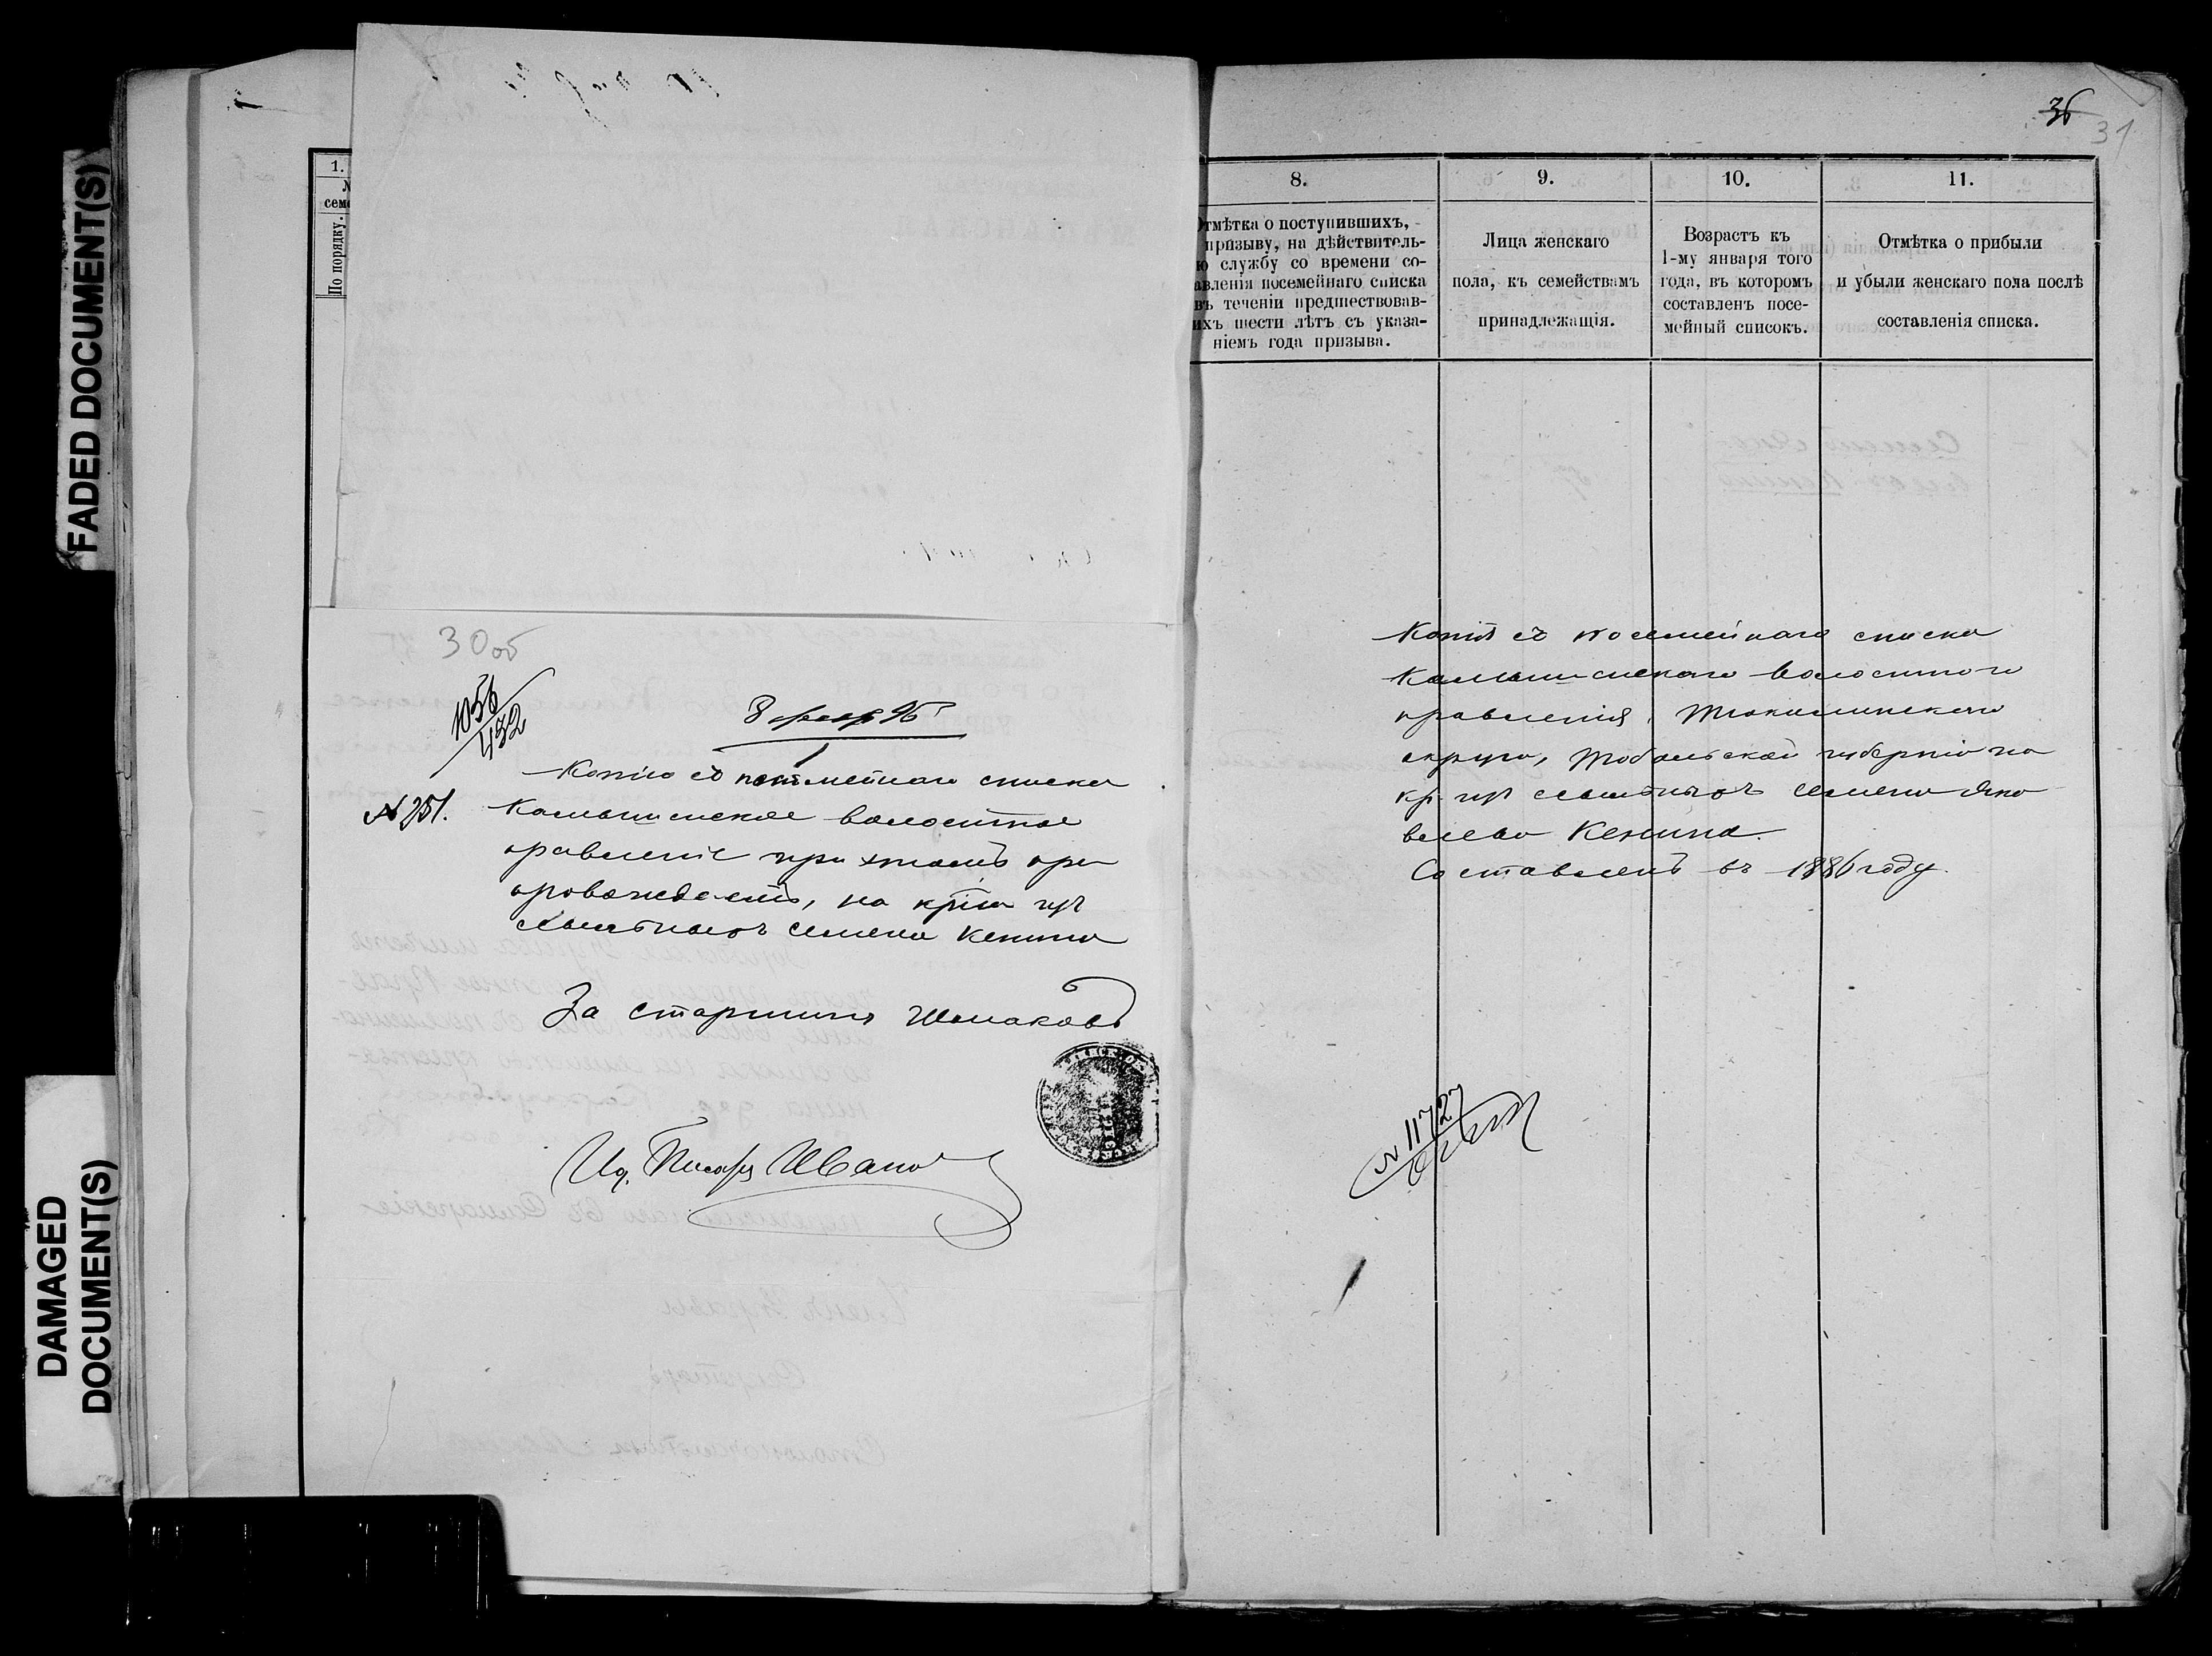 FADED DOCUMENT(S)
DAMAGED
DOCUMENT(S)
1.
По порядку.
30об
1056
432
8 февр 95
№ 251.
Копію съ посемейнаго списка
Камышинское волостное
правленіе при этомъ пре
провождаетъ, на кр-на изъ
ссыльныхъ Семена Кенина
За старшину Шмаковъ
Ид. Писаря Иванов
36
31
8.
Отмѣтка о поступившихъ,
призыву, на дѣйствитель-
ю службу со времени со-
авленія посемейнаго списка
въ теченіи предшествовав-
ихъ шести лѣтъ съ указа-
ніемъ года призыва.
9.
Лица женскаго
пола, къ семействамъ
принадлежащія.
10.
Возрастъ къ
1-му января того
года, въ которомъ
составленъ посе-
мейный списокъ.
11.
Отмѣтка о прибыли
и убыли женскаго пола послѣ
составленія списка.
Копія съ посемейнаго списка
Камышинскаго волостного
правленія, Тюкалинскаго
округа, Тобольской губерніи на
кр. изъ ссыльныхъ Семена Яко
влева Кенина.
Составленъ въ 1886 году.
№ 11727